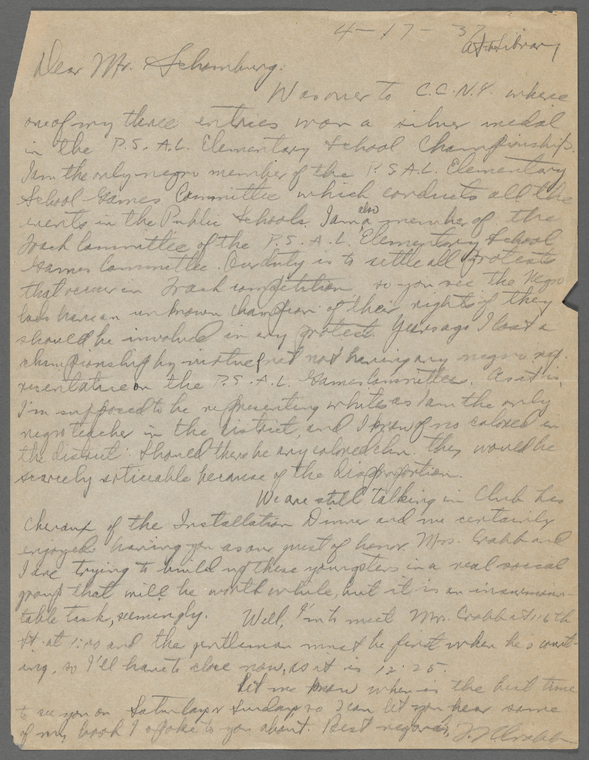 4-17-37
At Library
Dear Mr. Schomburg:
Was over to C.C.N.Y. where
one of my three entries won a silver medal
in the P.S.A.L. Elementary School Championships.
I am the only negro member of the P.S.A.L. Elementary
School Games Committee which conducts all the
events in the Public Schools. I am also a member of the
Track Committee of the P.S.A.L. Elementary School
Games Committee. Our duty is to settle all protests
that occur in track competition so you see the Negro
lads have an unknown champion of their rights if they
should be involved in any protest. Years ago I lost a
championship by virtue of not having any negro rep-
resentative on the P.S.A.L. Games Committee. As it is,
I'm supposed to be representing whites as I am the only
negro teacher in the district, and I know of no colored in
the district. Should there be any colored chn. they would be
scarcely noticeable because of the disproportion.
We are still talking in Club Las
of the Installation Dinner and we certainly
enjoyed having you as our guest of honor. Mrs. Crabb and
I are trying to build up these youngsters in a real social
group that will be worth while, but it is an insurmoun-
table task, seemingly. Well, I'm to meet Mrs. Crabb at 116th
St. at 1:00 and the gentleman must be first when he's wait-
ing, so I'll have to close now, as it is 12:25.
Let me know when is the best time
to see you on Saturday or Sunday so I can let you hear some
of my book I spoke to you about. Best regards, Crabb